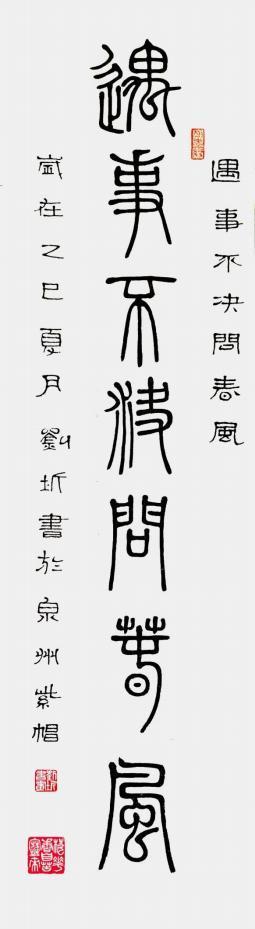 遇事不决问春风
遇事不決問春風
歲在乙巳夏月劉圻書於泉州紫帽